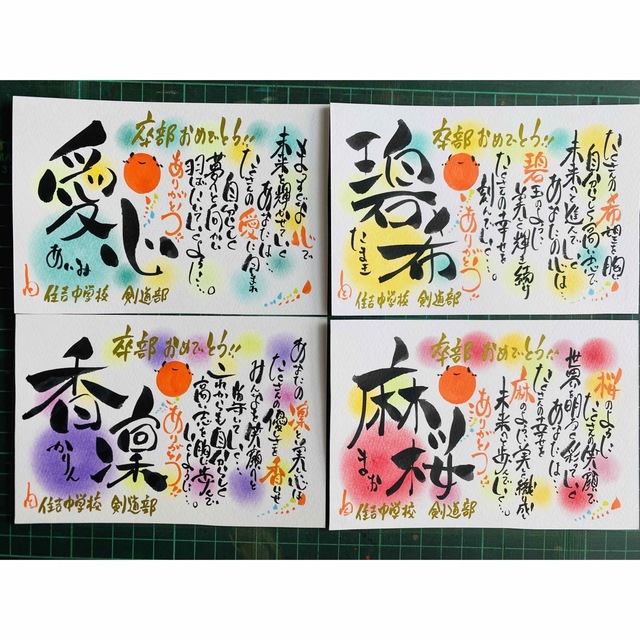 卒部おめでとう!!
愛心
あいみ
まっすぐな心で
未来を輝かせていく
あなたは…
たくさんの愛に包まれ
自分らしく
夢へと向かい
羽ばたいていくよ…
ありがとう
住吉中学校 剣道部
卒部おめでとう!!
碧希
たまき
たくさんの希望を胸に
自分らしく高い志で
未来を進んでいく
あなたの心は…
碧玉のように
美しく輝き続け
たくさんの幸せを
刻んでいく…
ありがとう
住吉中学校 剣道部
卒部おめでとう!!
香凛
かりん
あなたの凛とした美しい心は
たくさんの優しさを香らせ
みんなを笑顔へと
導いていく…
これからも自分らしく
高い志
ありがとう
住吉中学校 剣道部
卒部おめでとう!!
麻桜
まお
桜のように
たくさんの笑顔で
世界を明るく彩っていく
あなたは…
たくさんの幸せを
麻のように美しく織り成し
未来へと歩んでいく…
ありがとう
住吉中学校 剣道部